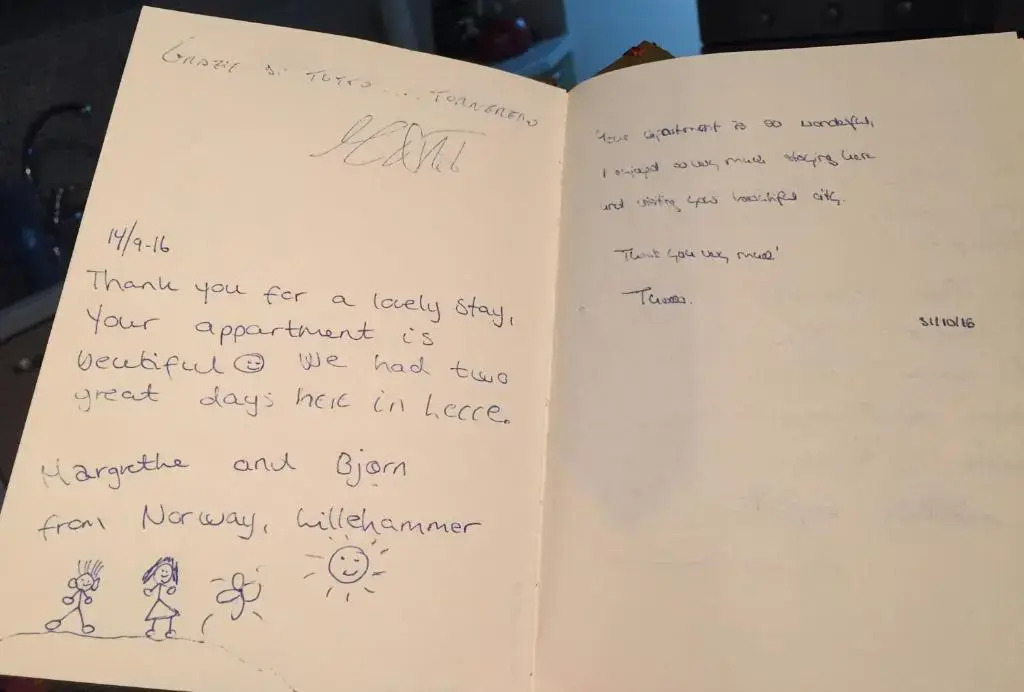 GRAZIE DI TUTTO.... TORNEREMO
14/9-16
Thank you for a lovely stay,
Your appartment is
beutiful We had two
great days here in Lecce.
Margrethe and Bjørn
from Norway, Lillehammer
Your apartment is so wonderful,
I enjoyed so very much staying here
and visiting your beautiful city.
Thank you very much!
31/10/16